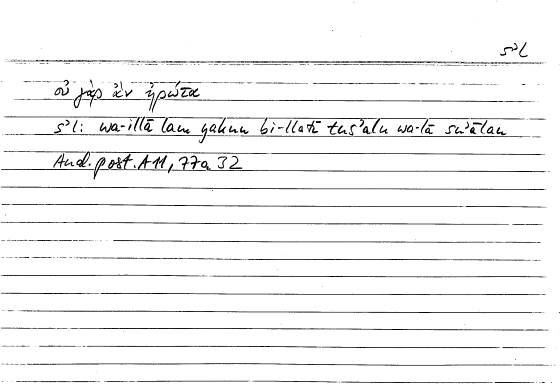 sʾl
οὐ γὰρ ἂν ἠρώτα
sʾl: wa-illā lam yakun bi-llatī tusʾalu wa-lā suʾālan
And. post. A 11, 77a 32